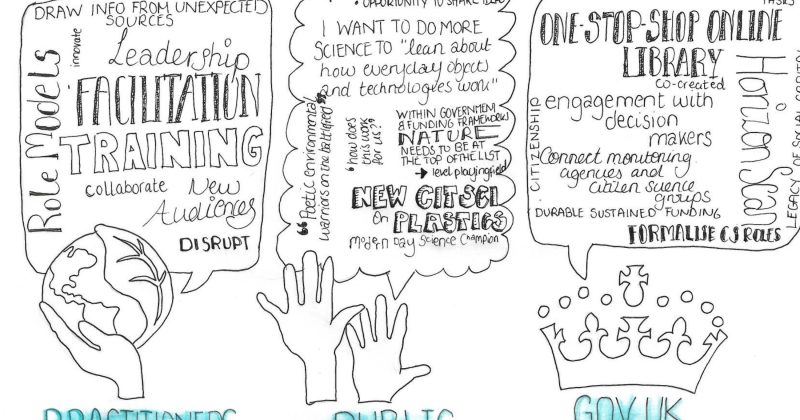 DRAW INFO FROM UNEXPECTED
SOURCES
innovate
Leadership
Role Models
FACILITATION
TRAINING
collaborate New
Audiences
DISRUPT
PRACTITIONERS
OPPORTUNITY TO SHARE IDEAS
I WANT TO DO MORE
SCIENCE TO "lean about
how everyday objects
and technologies work"
"Poetic environmental
warriors on the battlefield"
'how does
this work
for us?'
WITHIN GOVERNMENT
& FUNDING FRAMEWORKS
NATURE
NEEDS TO BE AT
THE TOP OF THE LIST
→ level playingfield
NEW CITSCI
On PLASTICS
Modern Day Science Champion
PUBLIC
ONE-STOP-SHOP ONLINE
LIBRARY
co-created
CITIZENSHIP
engagement with
decision
makers
Connect monitoring
agencies and
citizen science
groups
DURABLE SUSTAINED FUNDING
FORMALISE CS ROLES
Horizon Scan
LEGACY OF
GOV.UK